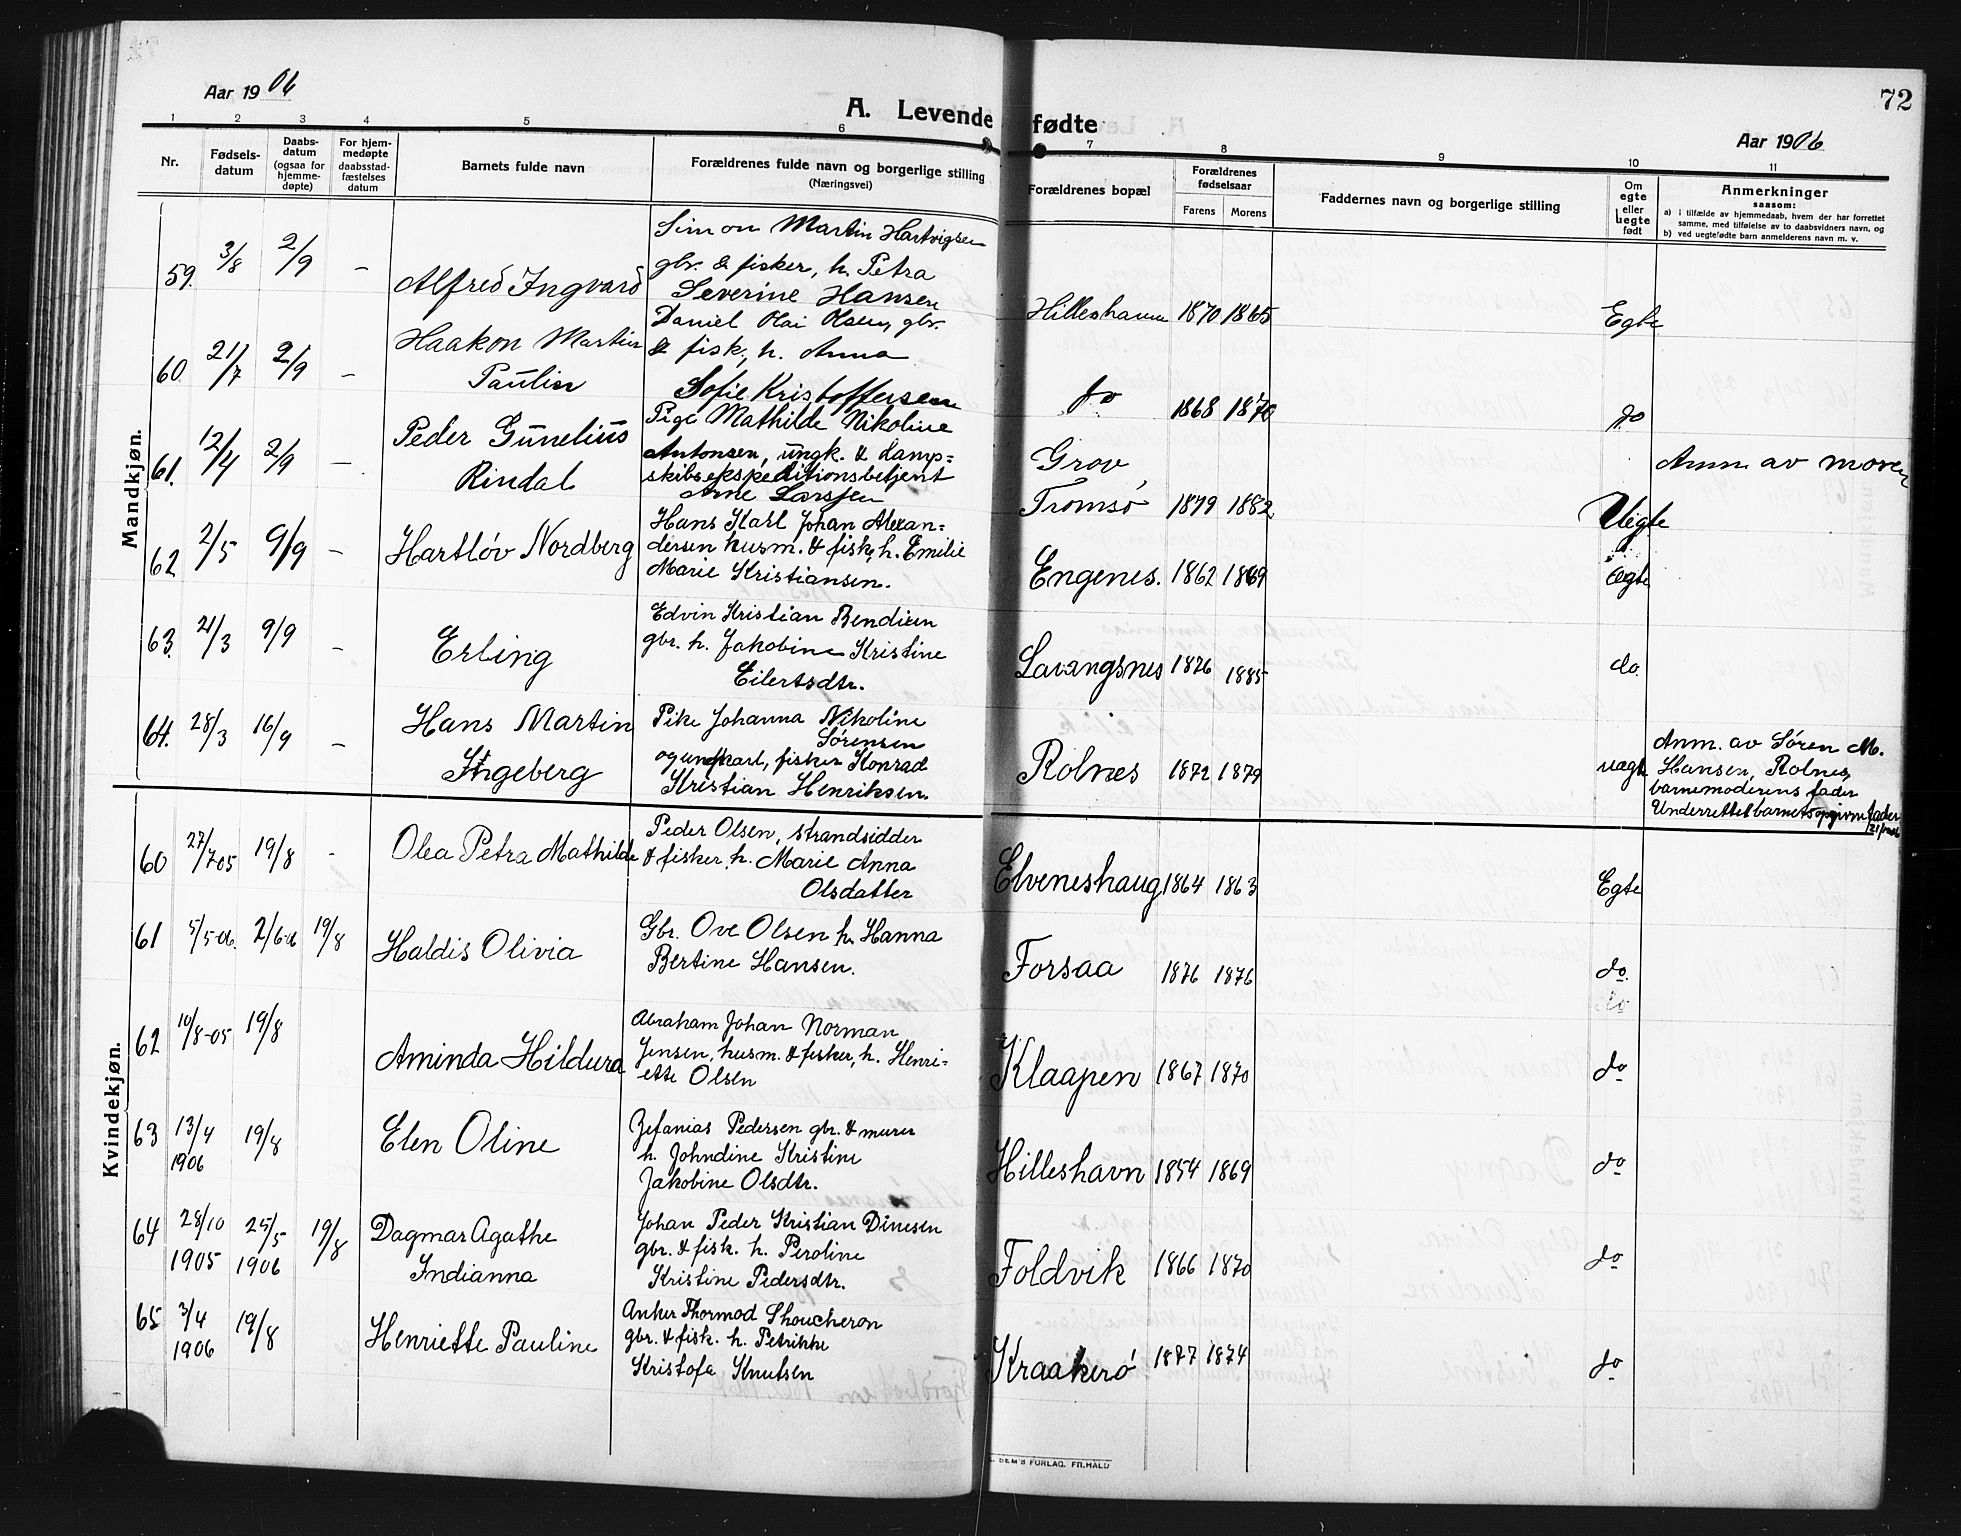 72
Aar 1906
Aar 1906
A. Levendefødte
1 2 3 4 5 6 7 8 9 10 11
Nr.
Fødsels-
datum
Daabs-
datum
(ogsaa for
hjemme-
døpte)
For hjem-
medøpte
daabsstad-
fæstelses
datum
Barnets fulde navn
Forældrenes fulde navn og borgerlige stilling
(Næringsvei)
Forældrenes bopæl
Forældrenes
fødselsaar
Farens Morens
Faddernes navn og borgerlige stilling
Om
egte
eller
uegte
født
Anmerkninger
saasom:
a) i tilfælde av hjemmedaab, hvem der har forrettet
samme, med tilføielse av to daabsvidners navn, og
b) ved uegtefødte barn anmelderens navn m. v.
Mandkjøn.
59. 3/8 2/9 – Alfred Ingvard
Simon Martin Hartvigsen
gbr. & fisker, h. Petra
Severine Hansen
Hilleshamn 1870 1865 Egte
60 21/7 2/9 – Haakon Martin
Paulin
Daniel Olai Olsen, gbr.
& fisk., h. Anna
Sofie Kristoffersen
do 1868 1870 do
61. 12/4 2/9 – Peder Gunelius
Rindal
Pige Mathilde Nikoline
Antonsen, ungk. & damp-
skibsekspeditionsbetjent
Arne Larssen
Grov
Tromsø 1879 1882 Uegte
Anm. av moren
62 2/5 9/9 – Hartløv Nordberg
Hans Karl Johan Alexan-
dersen husm. & fisk, h. Emilie
Marie Kristiansen.
Engenes. 1862 1869 Ægte
63. 21/3 9/9 – Erling
Edvin Kristian Bendixen
gbr. h. Jakobine Kristine
Eilertsdtr.
Lavangsnes 1876 1885 do.
64. 28/3 16/9 – Hans Martin
Ingeberg
Pike Johanna Nikoline
Sørensen
og ungkarl, fisker Konrad
Kristian Henriksen.
Rolnes 1872 1879 uægte
Anm. av Søren M.
Hansen, Rolnes,
barnemoderens fader
Underrettet barnets opgivne fader
Kvindekjøn.
60 27/7 05 19/8 - Olea Petra Mathilde
Peder Olsen, strandsidder
& fisker, h. Marie Anna
Olsdatter
Elveneshaug 1864 1863 Egte
61 5/5-06. 2/6-06 19/8 Haldis Olivia
Gbr. Ove Olsen h. Hanna
Bertine Hansen.
Forsaa 1876 1876 do.
do
62 10/8-05 19/8 Aminda Hildura
Abraham Johan Norman
Jensen, husm. & fisker, h. Henri-
ette Olsen
Klaapen 1867 1870 do
63 13/4
1906 19/8 Elen Oline
Zefanias Pedersen gbr. & murer
h. Johndine Kristine
Jakobine Olsdtr.
Hilleshavn 1854 1869 do
64 28/10
1905 25/5
1906 19/8 Dagmar Agathe
Indianna
Johan Peder Kristian Dinesen
gbr. & fisk. h. Peroline
Kristine Pedersdtr.
Foldvik 1866 1870 do
65 3/4
1906 19/8 Henriette Pauline
Anker Thormod Shoucheron
gbr. & fisk. h. Petrikke
Kristofa Knutsen
Kraakerø 1877 1874 do
DEM'S FORLAG. FR.HALD